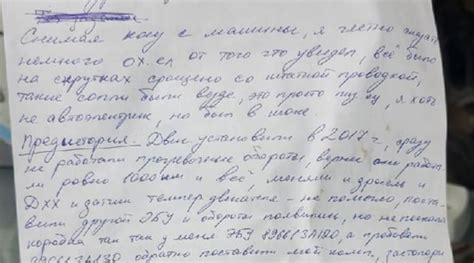 Снимая косу с машины, я честно сказать
немного ох..ел от того что увидел, всё было
на скрутках срощено со штатной проводкой,
такие сопли были везде, это просто пиз..ец, я хоть
не автоэлектрик, но был в шоке.
Предистория. Двиг. установили в 2017 г, сразу
не работали прогревочные обороты, вернее они работа
ли ровно 1000 и всё, меняли и дросель и
ДХХ и датчик темпер. двигателя - не помогло, поста-
вили другой ЭБУ и обороты появились, но не
коробка так как у меня ЭБУ 896613A120, а пробовали
обратно поставили мой комп,